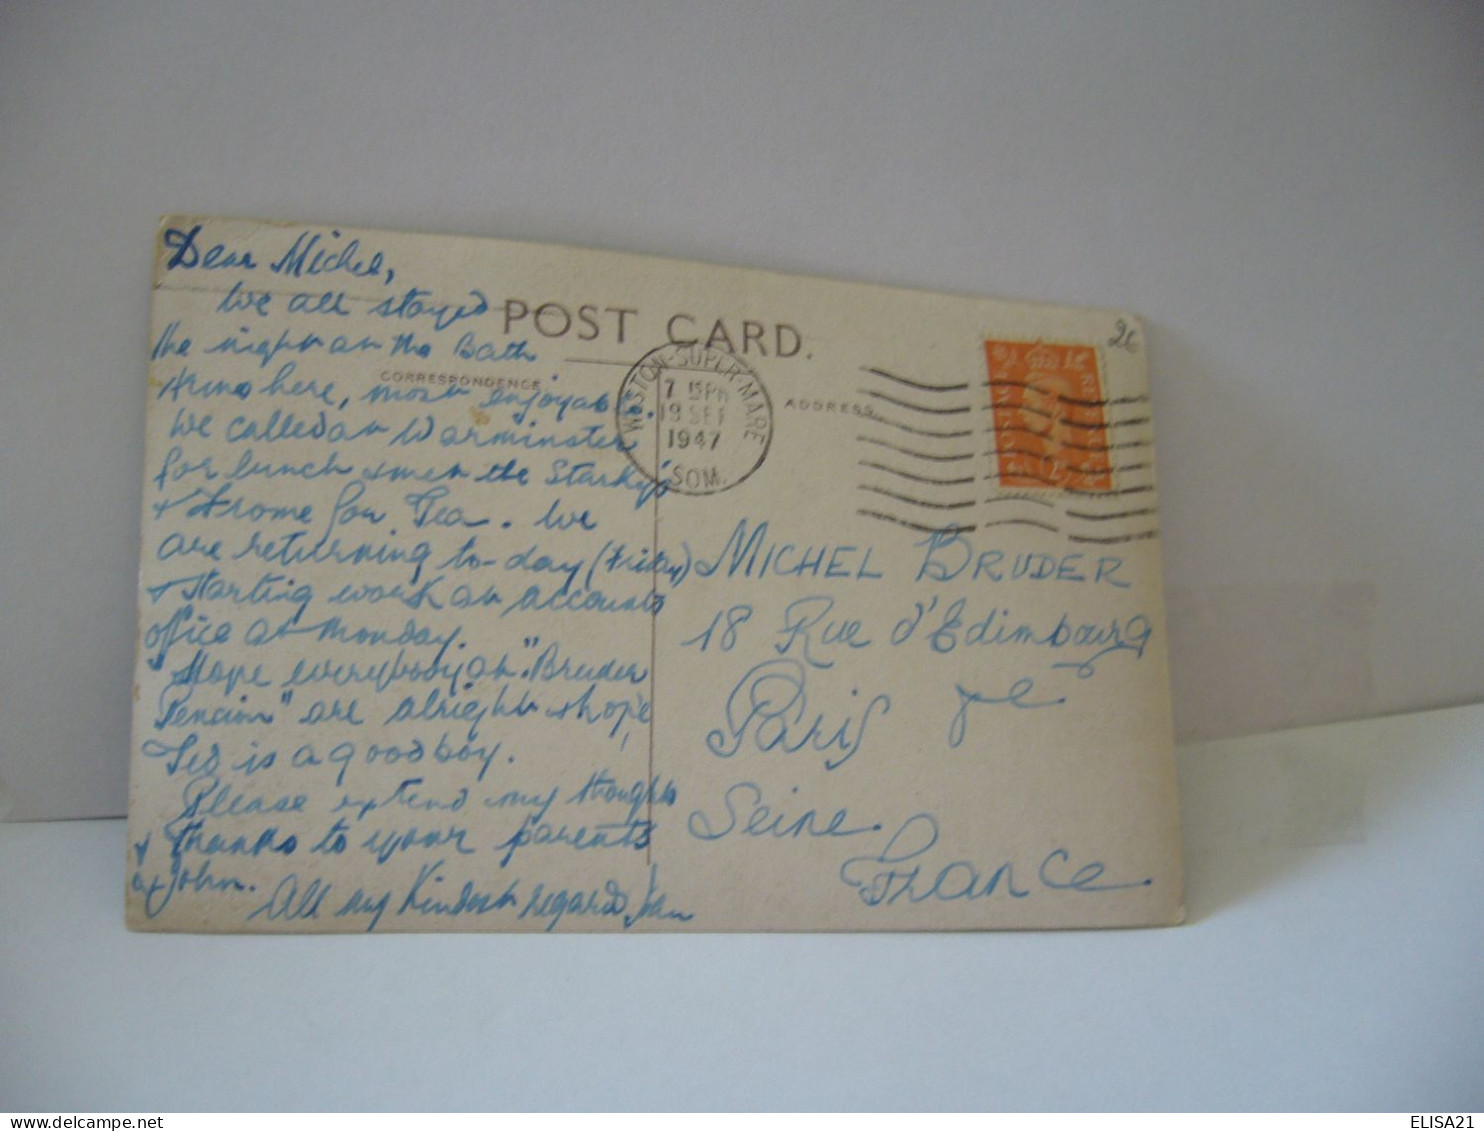 Dear Michel,
We all stayed
the night at the Bath
Arms here, most enjoyable.
We called at Warminster
for lunch & met the Starkey's
& Frome for Tea. We
are returning to-day (Friday)
& starting work at accounts
office at Monday.
Hope everybody at "Bruder
Pencion" are alright & hope
Ted is a good boy.
Please extend my thoughts
& thanks to your parents
& John.
All my Kindest regards
POST CARD.
CORRESPONDENCE
ADDRESS
WESTON-SUPER-MARE
7 15PM
19 SEP
1947
SOM.
26
MICHEL BRUDER
18 Rue d'Edimbourg
Paris
Seine.
France
ELISA21